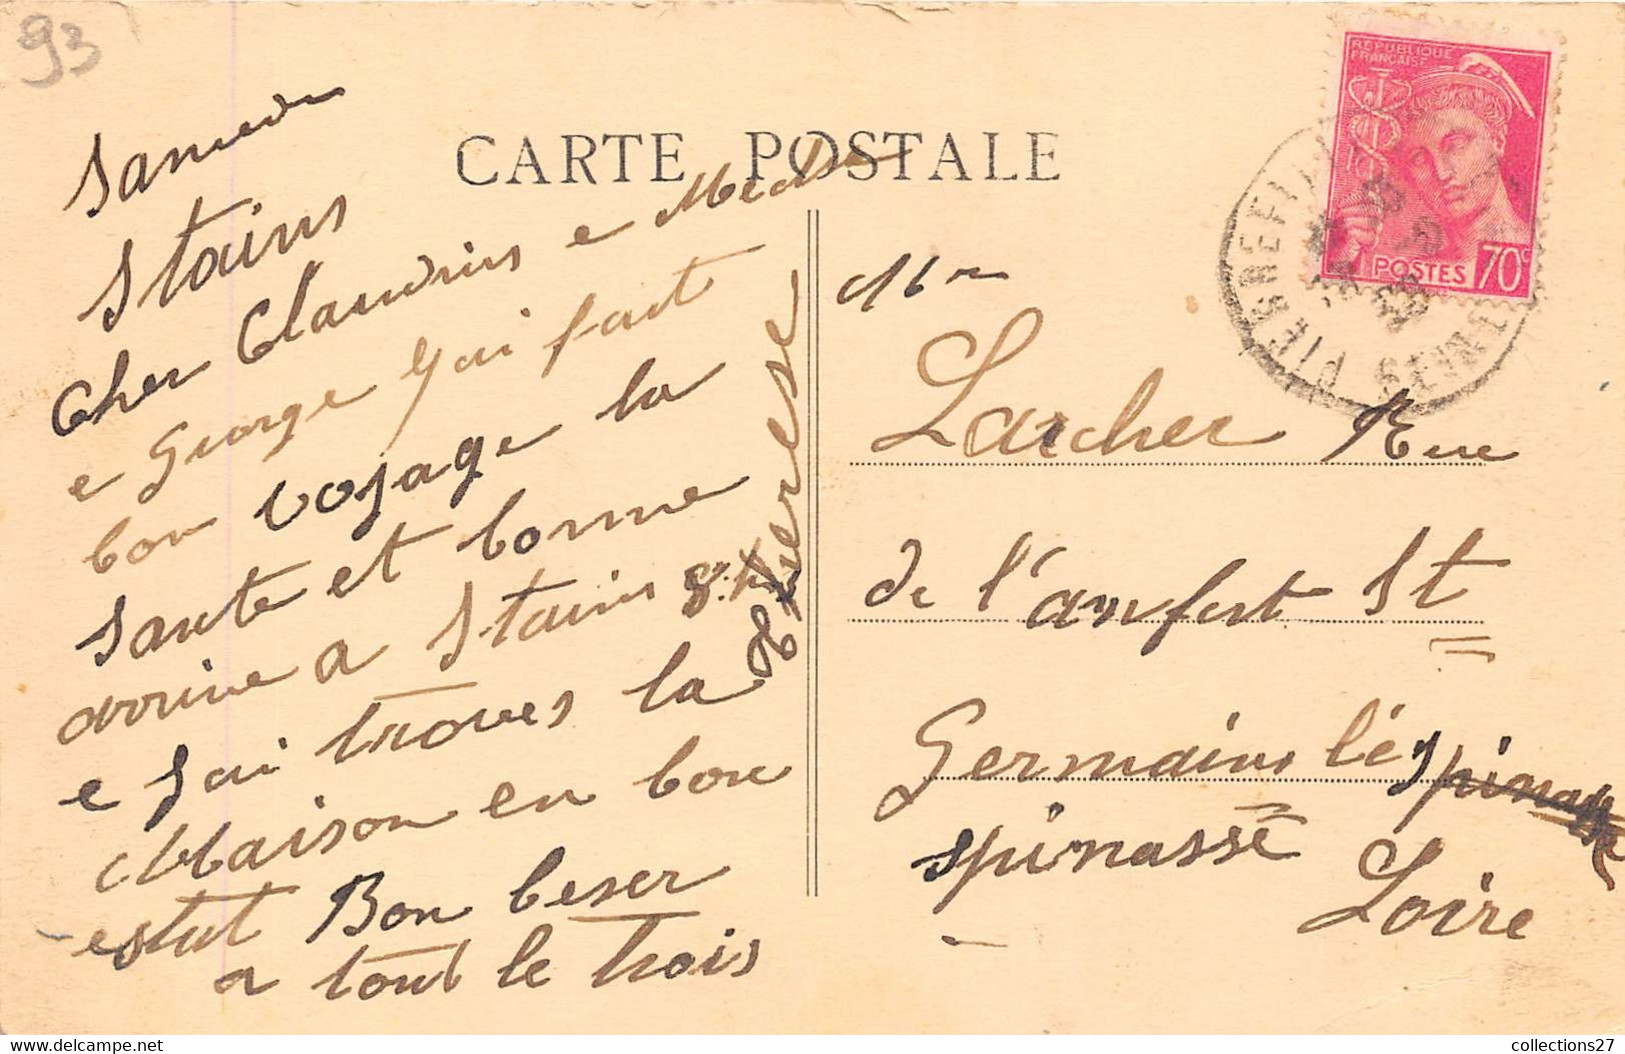 93
Samedi
Stains
CARTE POSTALE
Cher Claudius e
e George Jai fait
bon voyage la
sante et bonne
arrive a Stains
e Jai trouves la
Maison en bon
estat Bon beser
a tout le trois
Therese
Mr
Larcher Rue
de l'anfert St
=
Germains l'espinasse
spinasse
Loire
REPUBLIQUE
FRANCAISE
POSTES 70c
PIERREFITTE
collections27
www.delcampe.net